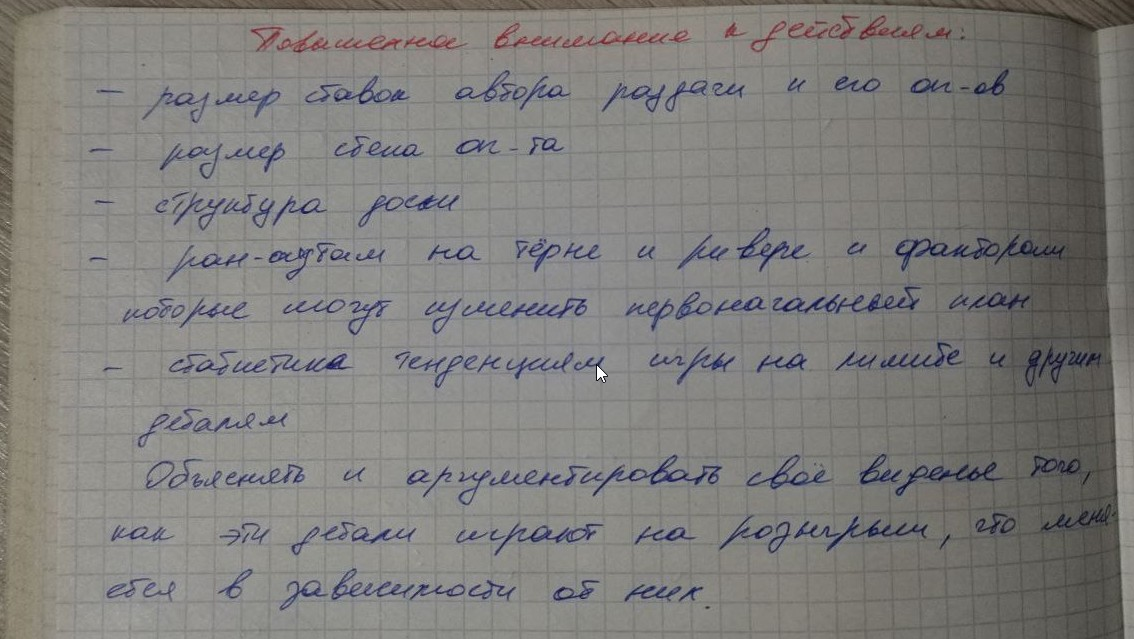 Повышенное внимание к действиям:
– размер ставок автора раздачи и его оп-ов
– размер стека оп-та
– структура доски
– ран-аутам на тёрне и ривере и факторами
которые могут изменить первоначальный план
– статистика тенденциям игры на лимите и другим
деталям
Объяснять и аргументировать своё виденье того,
как эти детали играют на розыгрыш, что меня-
ется в зависимости от них.